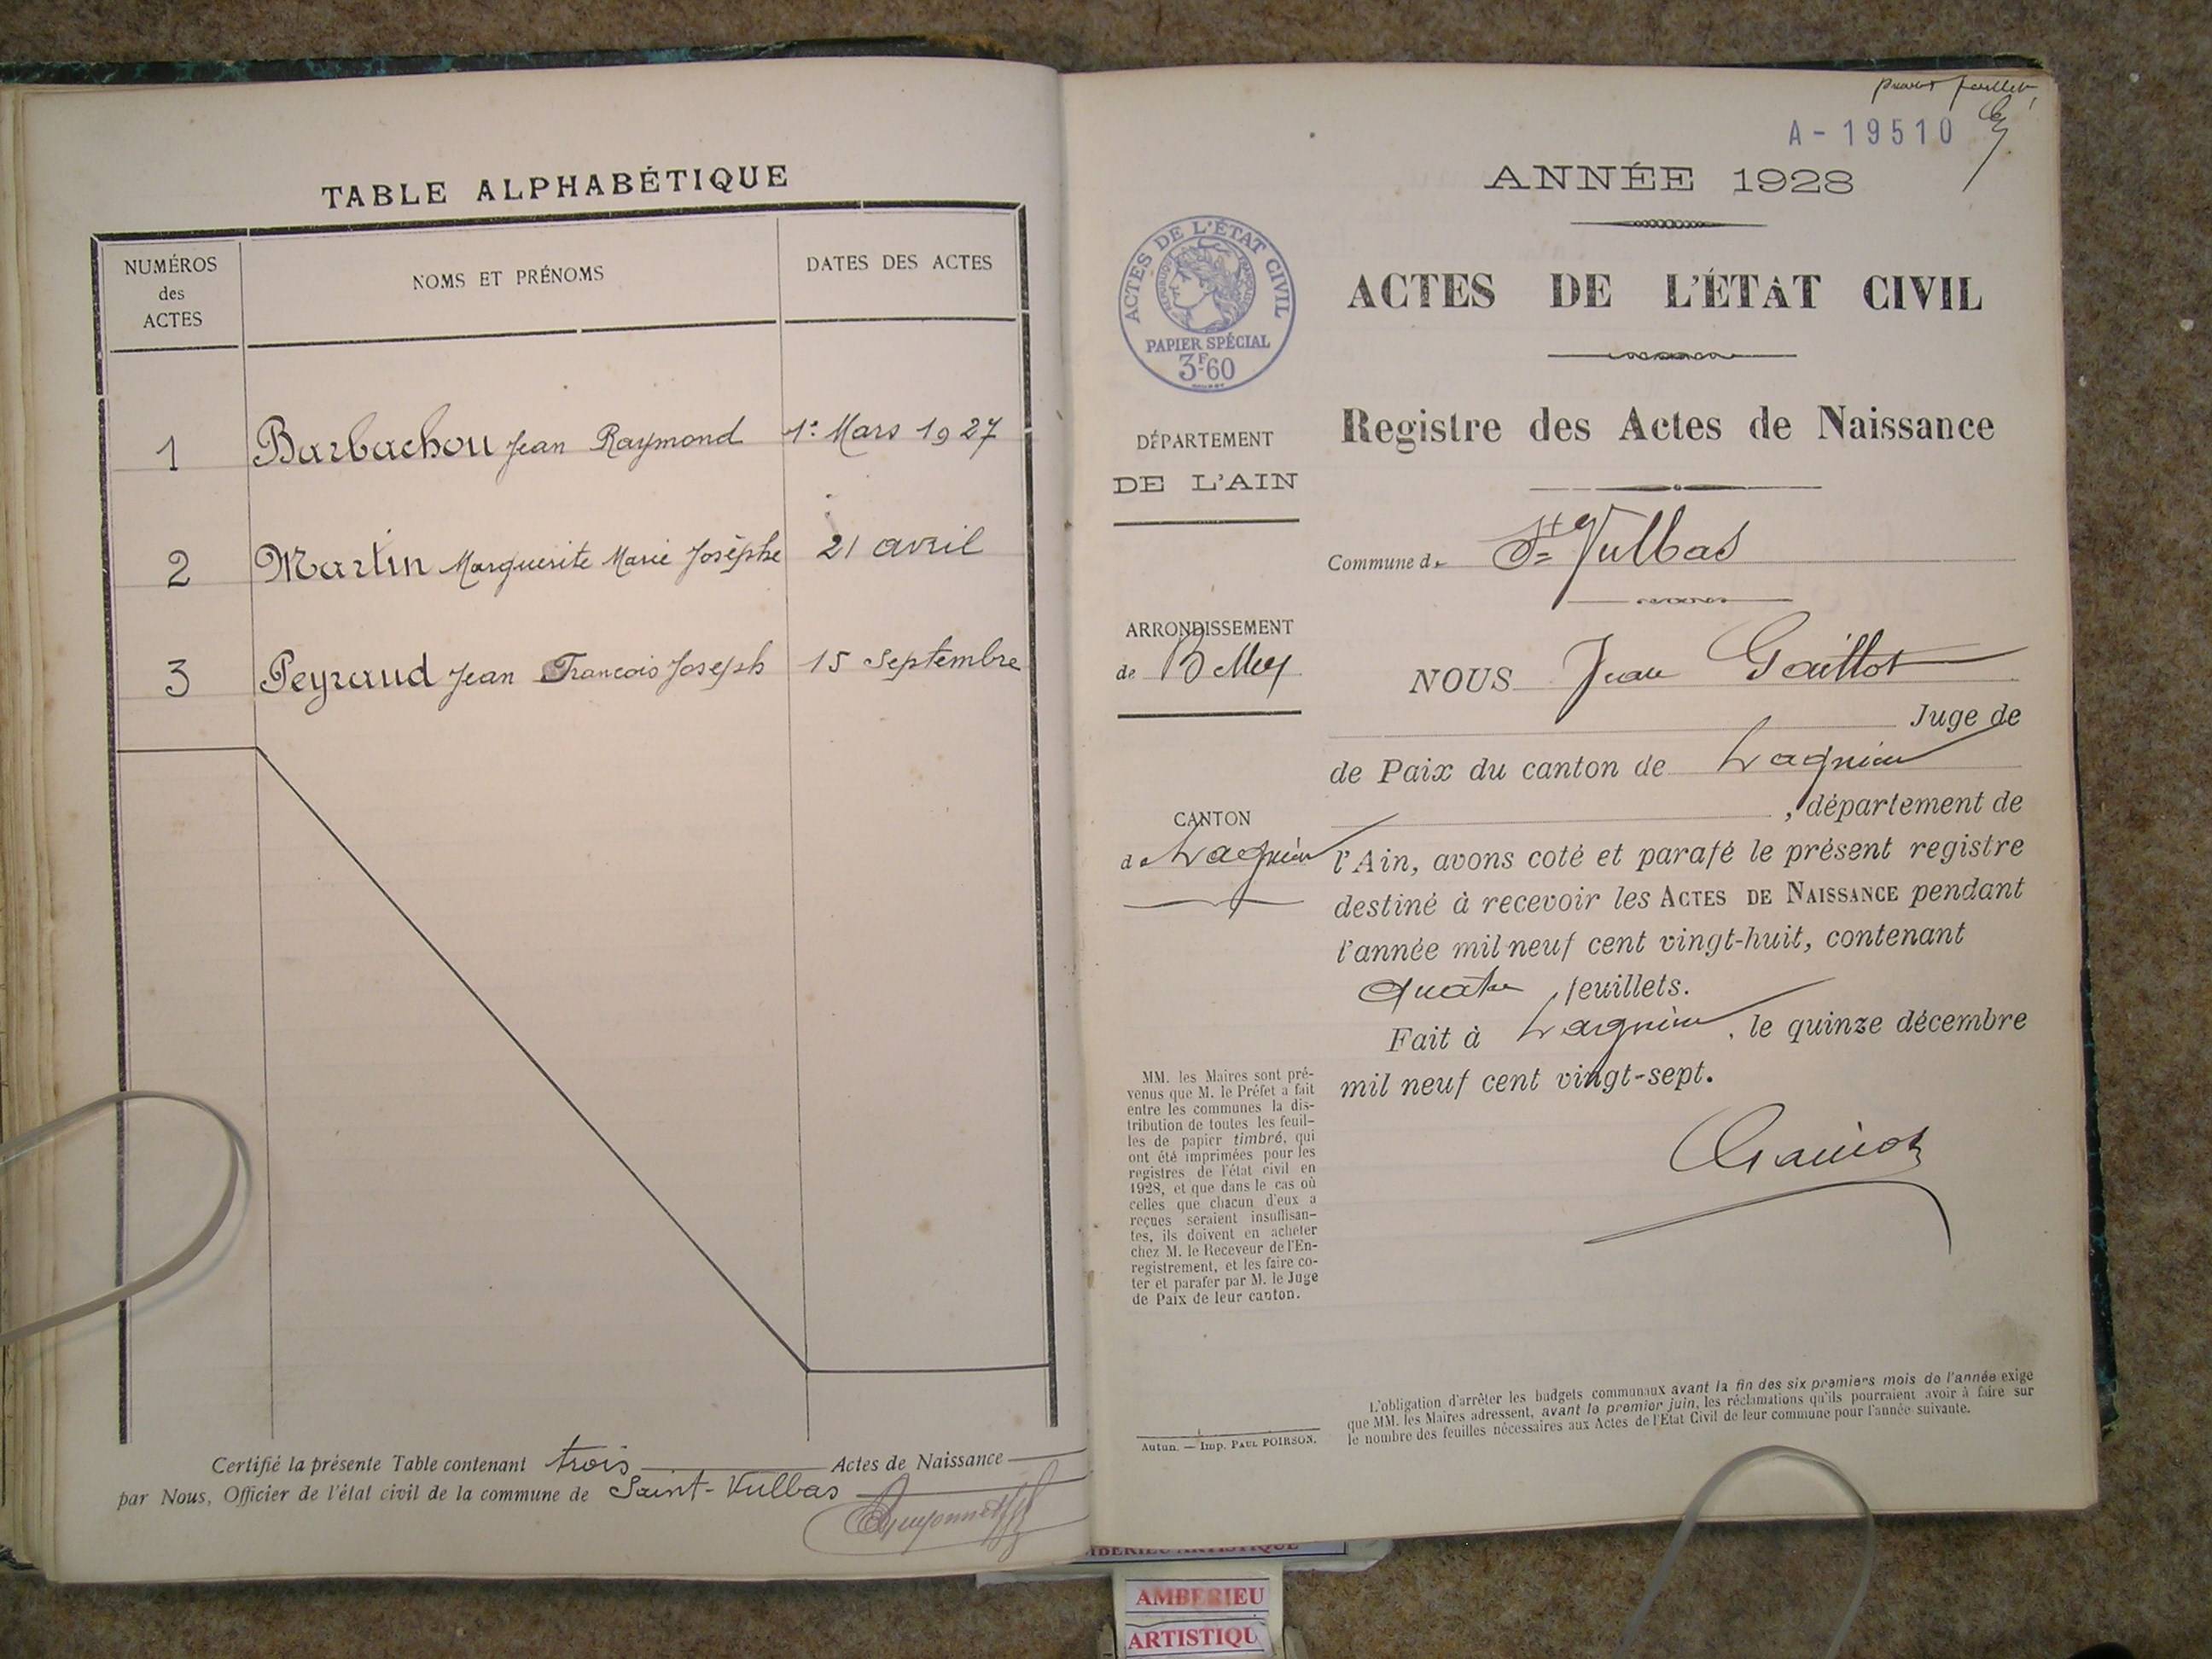 TABLE ALPHABÉTIQUE
NUMÉROS
des
ACTES
NOMS ET PRÉNOMS
DATES DES ACTES
1 Barbachou Jean Raymond 1er Mars 1927
2 Martin Marguerite Marie Josèphe 21 avril
3 Peyraud Jean Francois Joseph 15 Septembre
Certifié la présente Table contenant trois Actes de Naissance
par Nous, Officier de l'état civil de la commune de Saint-Vulbas
feuillet
A-19510
ANNÉE 1928
ACTES DE L'ÉTAT CIVIL
RÉPUBLIQUE FRANÇAISE
PAPIER SPÉCIAL
3F.60
ACTES DE L'ÉTAT CIVIL
Registre des Actes de Naissance
DÉPARTEMENT
DE L'AIN
Commune de St Vulbas
ARRONDISSEMENT
de Belley
NOUS Jean Gaillot
Juge de
de Paix du canton de Lagnieu
, département de
CANTON
de Lagnieu
l'Ain, avons coté et parafé le présent registre
destiné à recevoir les ACTES DE NAISSANCE pendant
l'année mil neuf cent vingt-huit, contenant
quatre feuillets.
Fait à Lagnieu, le quinze décembre
mil neuf cent vingt-sept.
MM. les Maires sont pré-
venus que M. le Préfet a fait
entre les communes la dis-
tribution de toutes les feuil-
les de papier timbré, qui
ont été imprimées pour les
registres de l'état civil en
1928, et que dans le cas où
celles que chacun d'eux a
reçues seraient insuffisan-
tes, ils doivent en acheter
chez M. le Receveur de l'En-
registrement, et les faire co-
ter et parafer par M. le Juge
de Paix de leur canton.
Autun. — Imp. PAUL POIRSON.
L'obligation d'arrêter les budgets communaux avant la fin des six premiers mois de l'année exige
que MM. les Maires adressent, avant le premier juin, les réclamations qu'ils pourraient avoir à faire sur
le nombre des feuilles nécessaires aux Actes de l'Etat Civil de leur commune pour l'année suivante.
AMBERIEU
ARTISTIQU